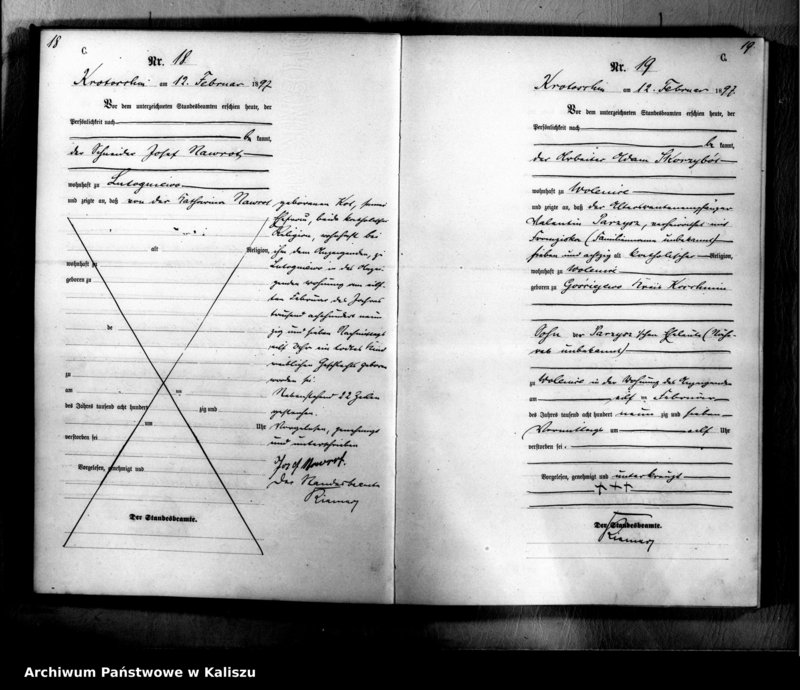 18
C.
Nr. 18
Krotoschin am 12. Februar 1897
Vor dem unterzeichneten Standesbeamten erschien heute, der
Persönlichkeit nach
be kannt,
der Schneider Josef Nawrot
wohnhaft zu Lutogniewo
und zeigte an, daß von der Katharina Nawrot
geborenen Kos, seiner
Ehefrau, beide katholischer
Religion, wohnhaft bei
ihm dem Anzeigenden, zu
Lutogniewo in des Anzei-
genden Wohnung am elf-
ten Februar des Jahres
tausend achthundert neun
zig und sieben Nachmittags
elf Uhr ein todtes Kind
weiblichen Geschlechts geboren
worden sei
Nebenstehend 22 Zeilen
gestrichen.
Vorgelesen, genehmigt
und unterschrieben
Josef Nawrot.
Der Standesbeamte
alt Religion,
wohnhaft zu
geboren zu
de
zu
am ten
des Jahres tausend acht hundert zig und
um Uhr
verstorben sei
Vorgelesen, genehmigt und
Der Standesbeamte.
19
C.
Nr. 19
Krotoschin am 12. Februar 1897
Vor dem unterzeichneten Standesbeamten erschien heute, der
Persönlichkeit nach
be kannt,
der Arbeiter Adam Skorzybot
wohnhaft zu Wolenice
und zeigte an, daß der Altersrentenempfänger
Valentin verheirathet mit
Franziska (Familienname unbekannt)
sieben und achzig alt katholischer Religion,
wohnhaft zu Wolenice
geboren zu Kreis Koschmin
Sohn der schen Eheleute (Näh-
eres unbekannt)
zu Wolenice in der Wohnung des Anzeigenden
am elf ten Februar
des Jahres tausend acht hundert neun zig und sieben
Vormittags um elf Uhr
verstorben sei.
Vorgelesen, genehmigt und unterkreuzt
+++
Der Standesbeamte.
Archiwum Państwowe w Kaliszu